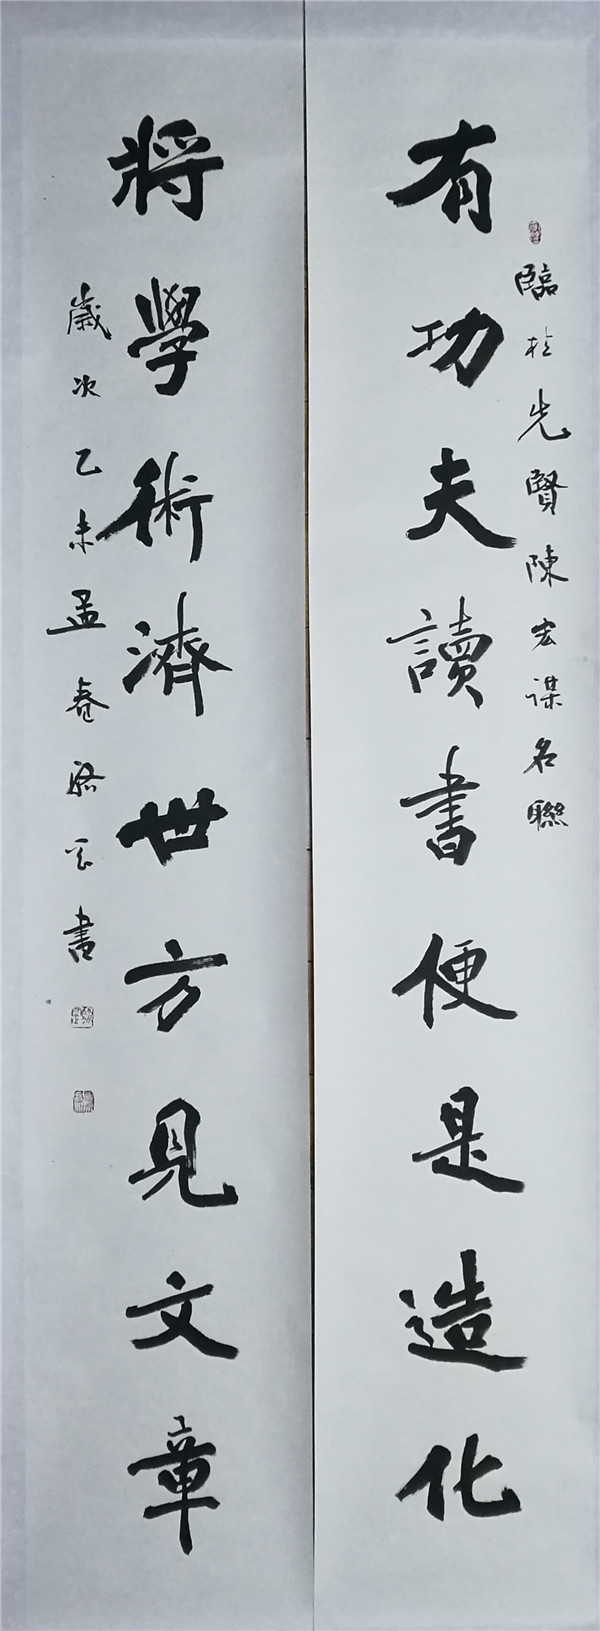 有功夫讀書便是造化
臨桂先賢陳宏謀名聯
將學術濟世方見文章
歲次乙未孟春 書